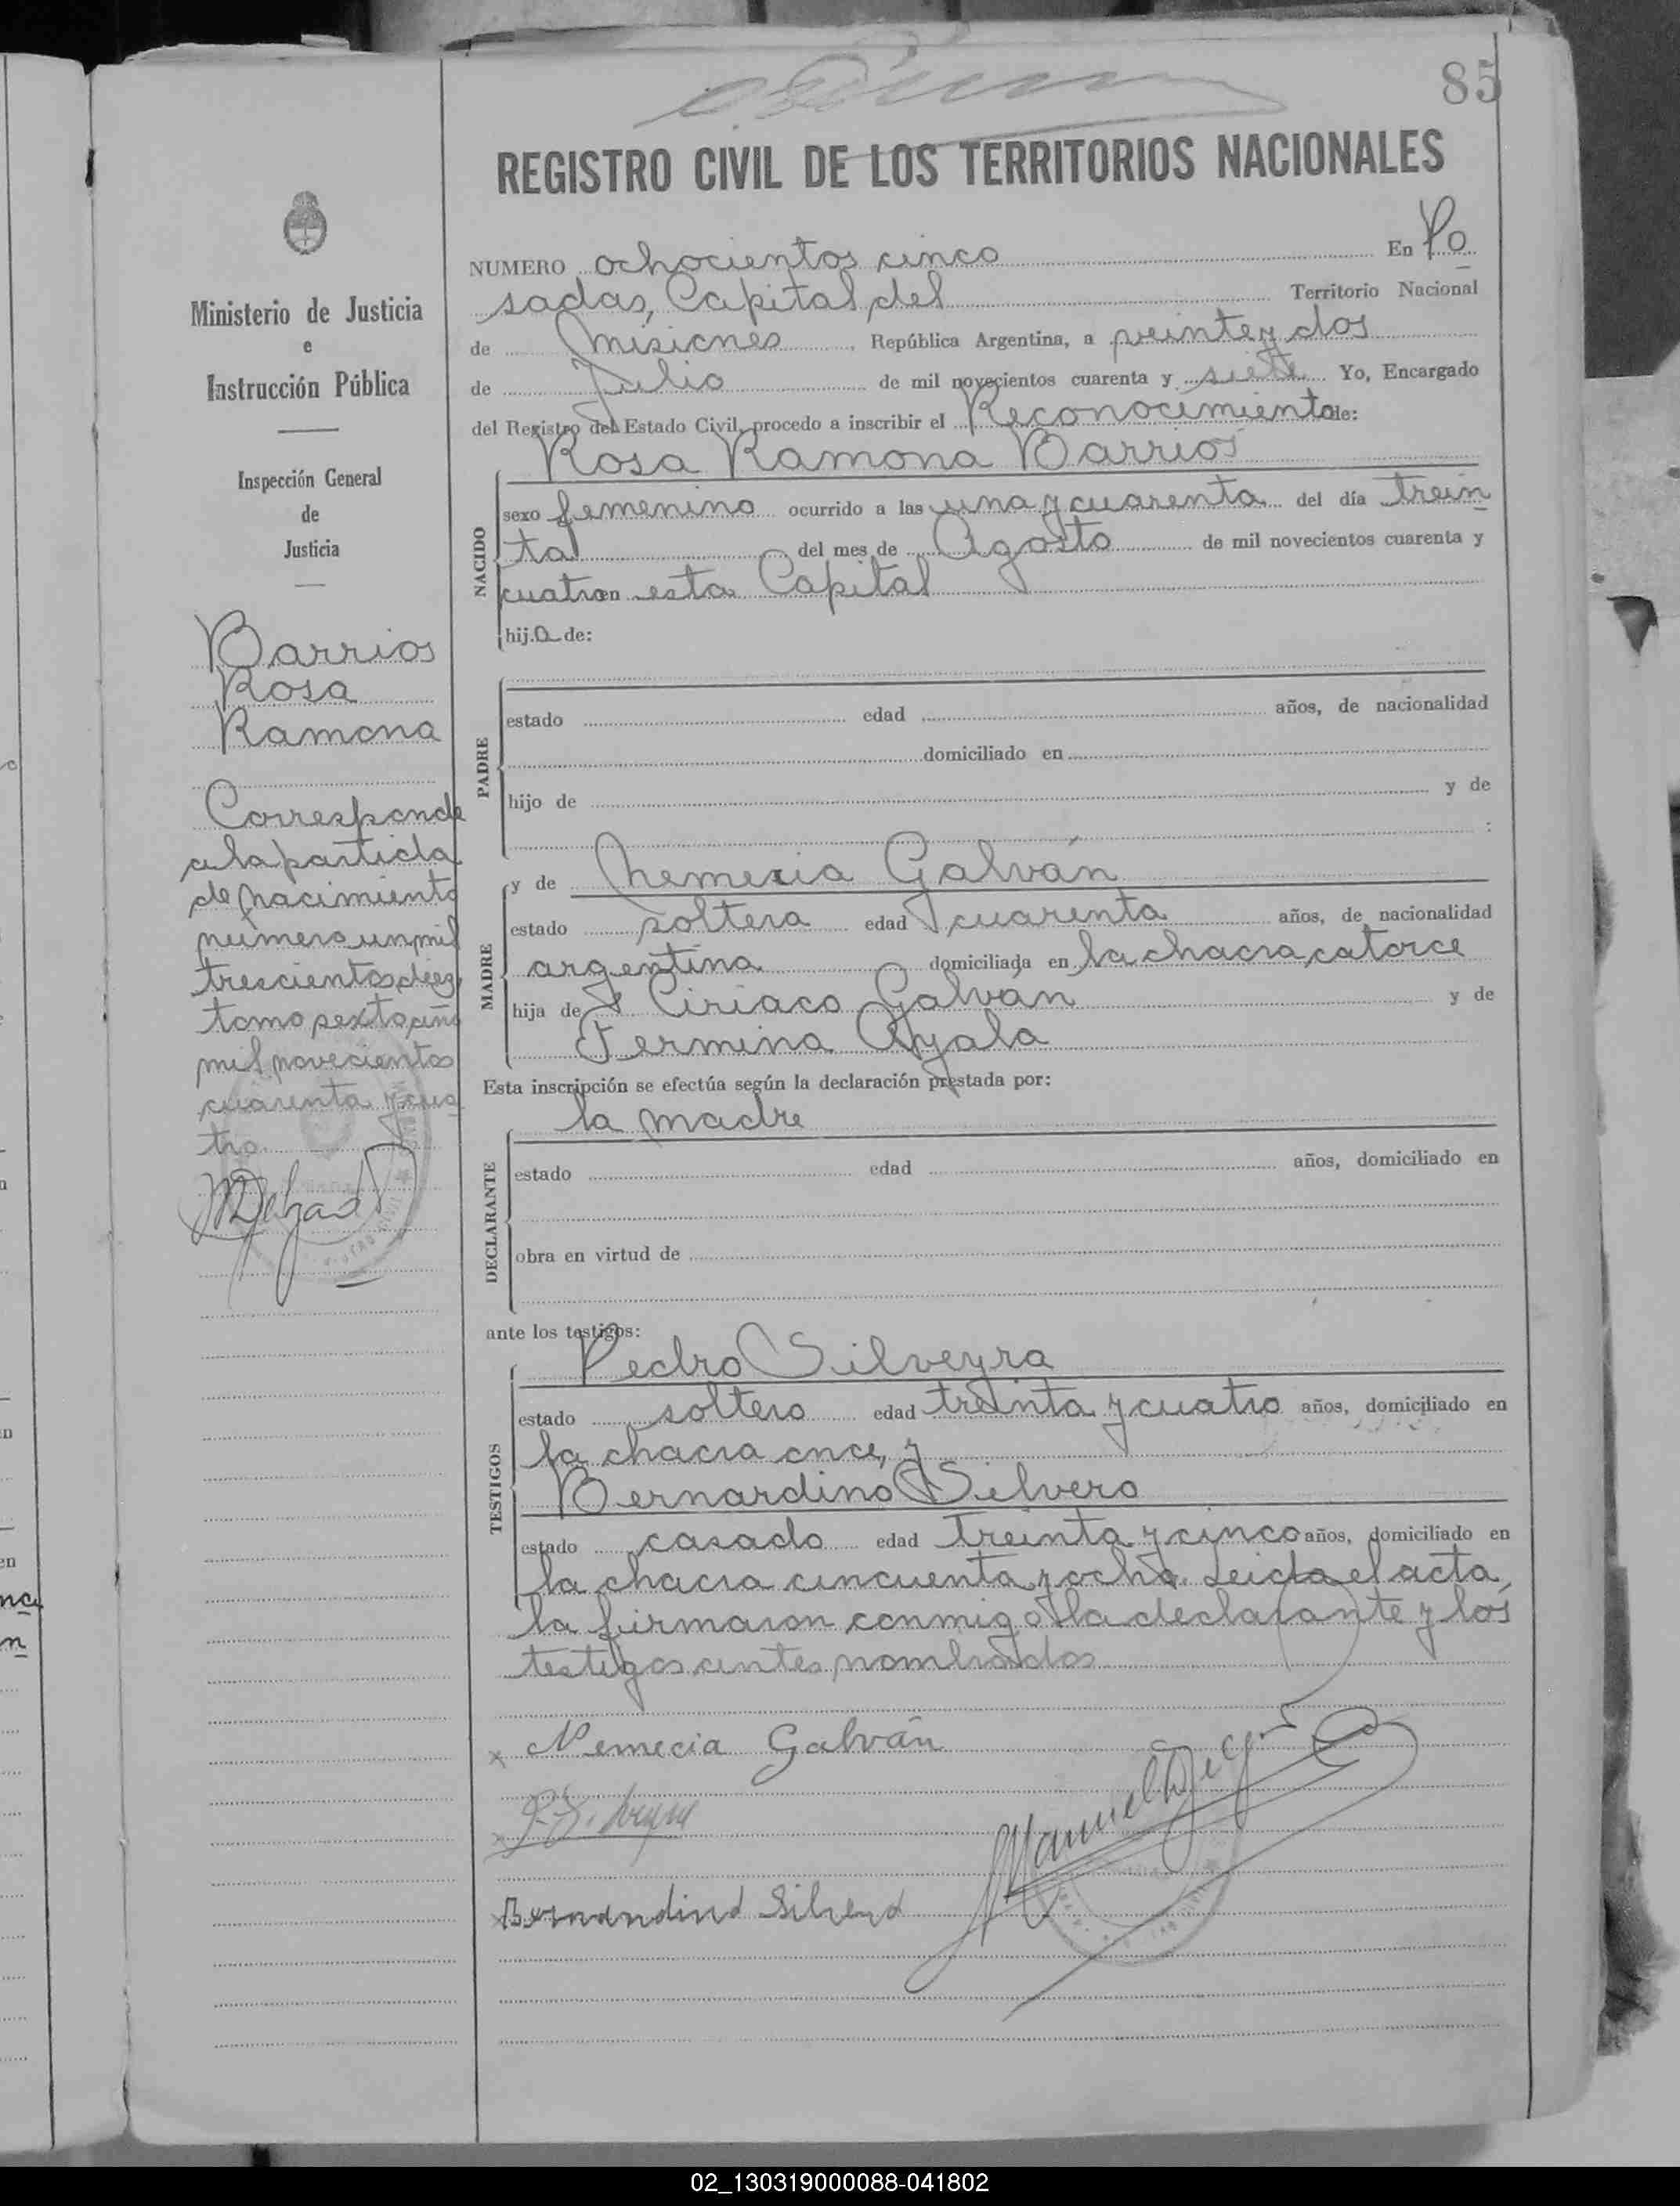 85
REGISTRO CIVIL DE LOS TERRITORIOS NACIONALES
Ministerio de Justicia
e
Instrucción Pública
Inspección General
de
Justicia
Barrios
Rosa
Ramona
Corresponde
a la partida
de nacimiento
número un mil
trescientos diez
tomo sexto año
mil novecientos
cuarenta y cua
tro
NUMERO ochocientos cinco En Po
sadas, Capital del Territorio Nacional
de Misiones, República Argentina, a veinte y dos
de Julio de mil novecientos cuarenta y siete Yo, Encargado
del Registro del Estado Civil, procedo a inscribir el Reconocimiento de:
Rosa Ramona Barrios
NACIDO
sexo femenino ocurrido a las una y cuarenta del día trein
ta del mes de Agosto de mil novecientos cuarenta y
cuatro en esta Capital
hija de:
PADRE
estado edad años, de nacionalidad
domiciliado en
hijo de y de
:
MADRE
y de Nemecia Galván
estado soltera edad cuarenta años, de nacionalidad
argentina domiciliada en la chacra catorce
hija de Ciriaco Galvan y de
Fermina Ayala
Esta inscripción se efectúa según la declaración prestada por:
la madre
DECLARANTE
estado edad años, domiciliado en
obra en virtud de
ante los testigos:
TESTIGOS
Pedro Silveyra
estado soltero edad treinta y cuatro años, domiciliado en
la chacra once, y
Bernardino Silvero
estado casado edad treinta y cinco años, domiciliado en
la chacra cincuenta y ocho. Leida el acta,
la firmaron conmigo la declarante y los
testigos antes nombrados
x Nemecia Galván
x Bernardino Silvero
02_130319000088-041802